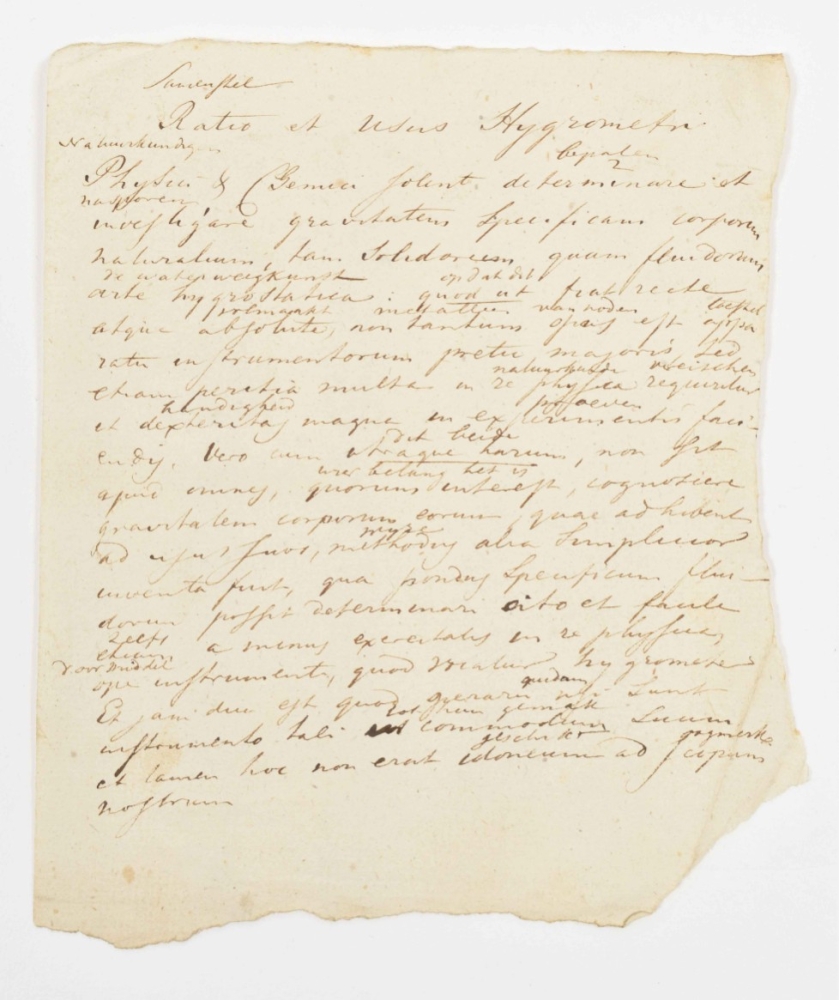 Samenstel
Ratio et Usus Hygrometri
Natuurkundigen bepalen
Physici & Chemici solent determinare et
nasporen
investigare gravitatem specificam corporum
naturalium, tam solidorum quam fluidorum
de waterweegkunst opdat dit
arte hygrostatica: quod ut fiat recte
volmaakt van noden toestel
atque absolute, non tantum opus est appa
ratu instrumentorum pretii majoris sed
natuurkunde vereischen
etiam peritia multa in re physica requiritur
handigheid proeven
et dexteritas magna in experimentis faci-
dit beide
endis. Vero cum utraque harum, non sit
wier belang het is
apud omnes, quorum interest, cognoscere
gravitatem corporum eorum, quae adhibent
wyze
ad usus suos, methodus alia simplicior
inventa fuit, qua pondus specificum flui-
dorum possit determinari cito et facile
zelfs
etiam a minus exercitatis in re physica,
door middel
ope instrumenti, quod vocatur hygrometer
quidam
Et jam diu est quod operarii usi sunt
tot hun gemak
instrumento tali ad commodum suum
geschikt oogmerk
et tamen hoc non erat idoneum ad scopum
nostrum